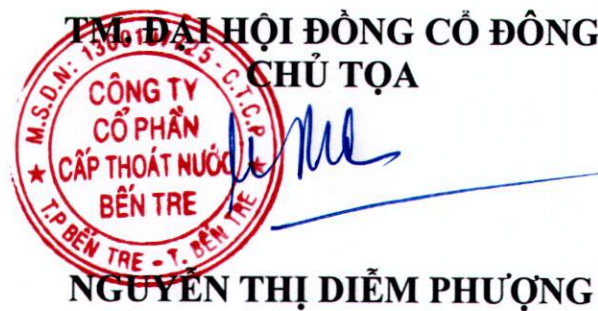 TM. ĐẠI HỘI ĐỒNG CỔ ĐÔNG
CHỦ TỌA
CÔNG TY
CỔ PHẦN
CẤP THOÁT NƯỚC
BẾN TRE
T.P BẾN TRE - T. BẾN TRE
NGUYỄN THỊ DIỄM PHƯỢNG